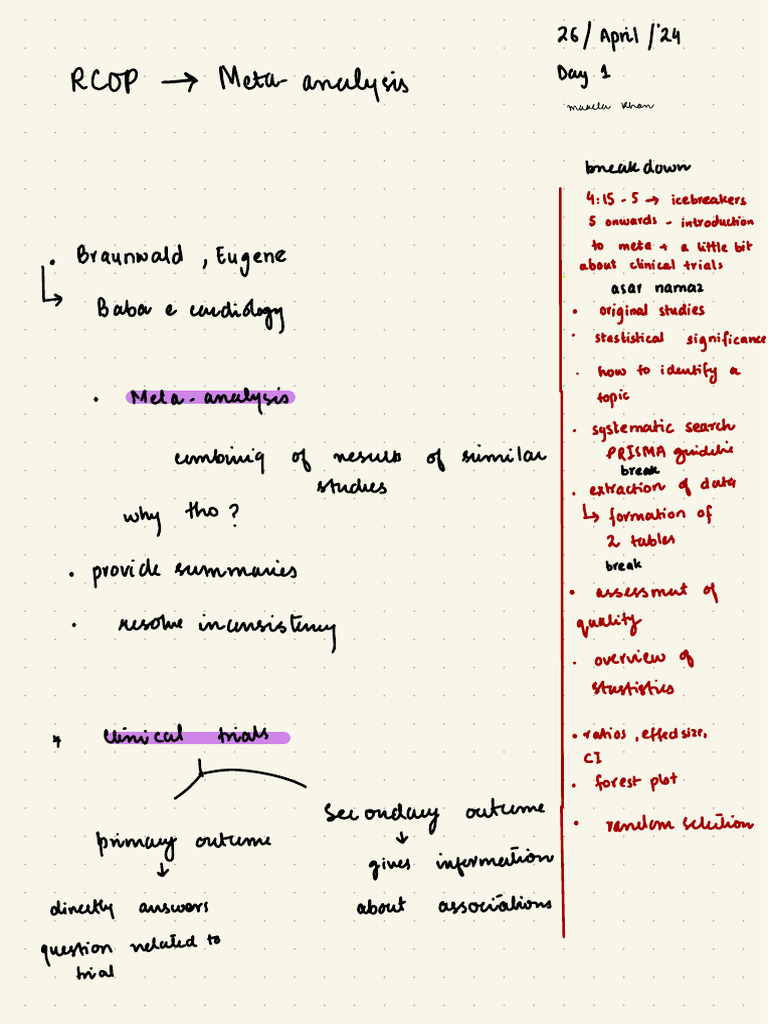 26/ April /'24
RCOP → Meta-analysis
Day 1
Khan
breakdown
4:15 - 5 → icebreakers
5 onwards - introduction
to meta + a little bit
about clinical trials
asar namaz
• original studies
• stastistical significance
• how to identify a
topic
• systematic search
PRISMA guideline
break
• extraction of data
↳ formation of
2 tables
break
• assessment of
quality
• overview of
stastistics
• ratios, effect size,
CI
• forest plot
• random selection
• Braunwald, Eugene
↳ Baba e cardiology
• Meta-analysis
combining of results of similar
studies
why tho?
• provide summaries
• resolve inconsistency
* Clinical trials
primary outcome
↓
directly answers
question related to
trial
Secondary outcome
↓
gives information
about associations